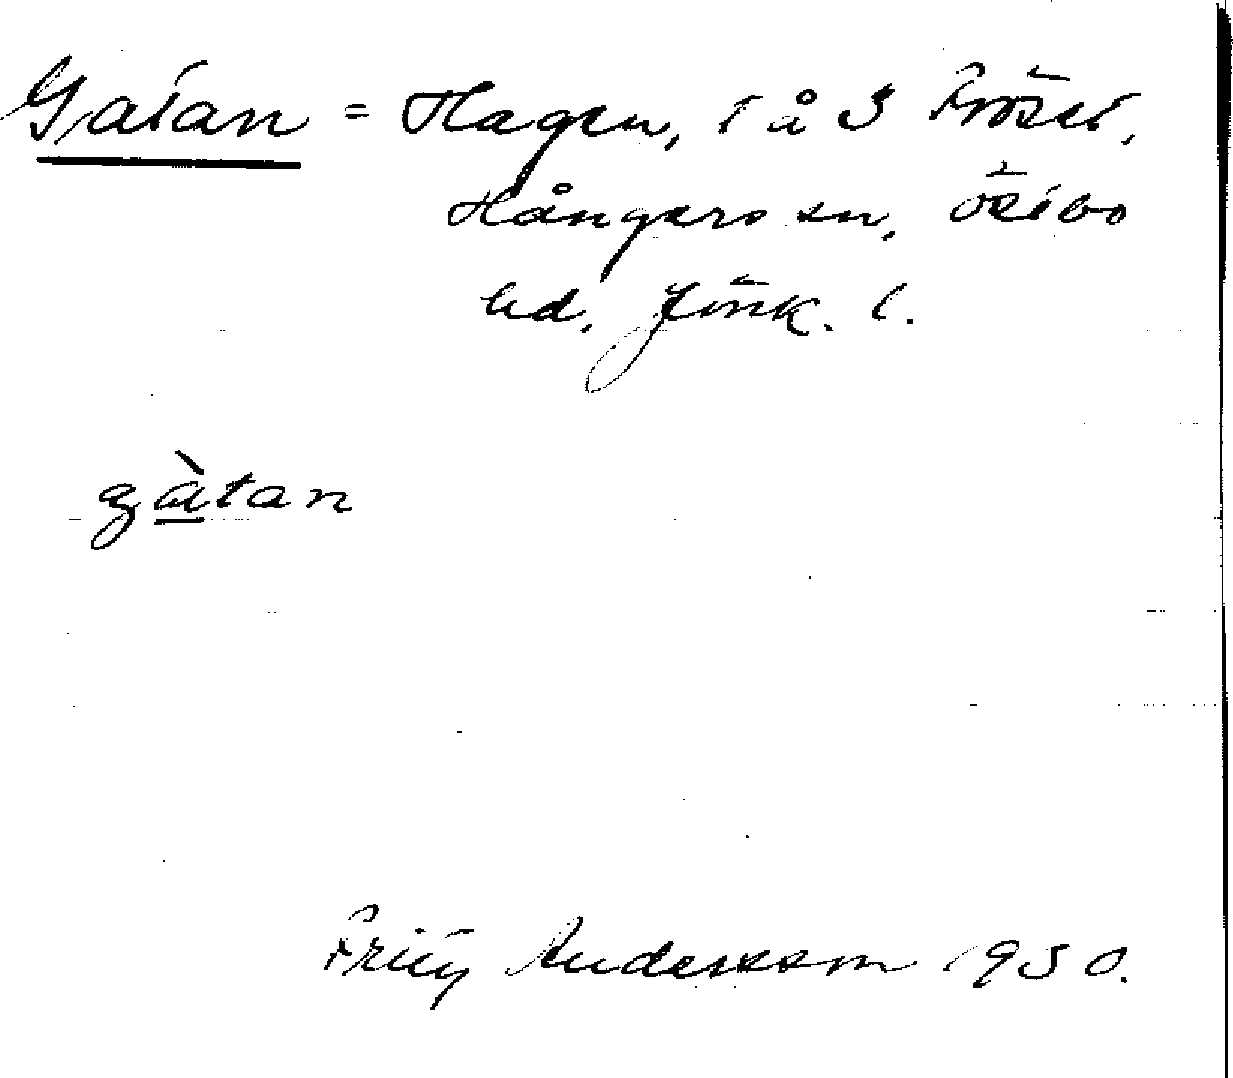 Gatan = Hagen, i å 3 Fröset,
Hångers sn, Östbo
hd, Jönk. l.
gàtan
Fritz Andersson 1930.